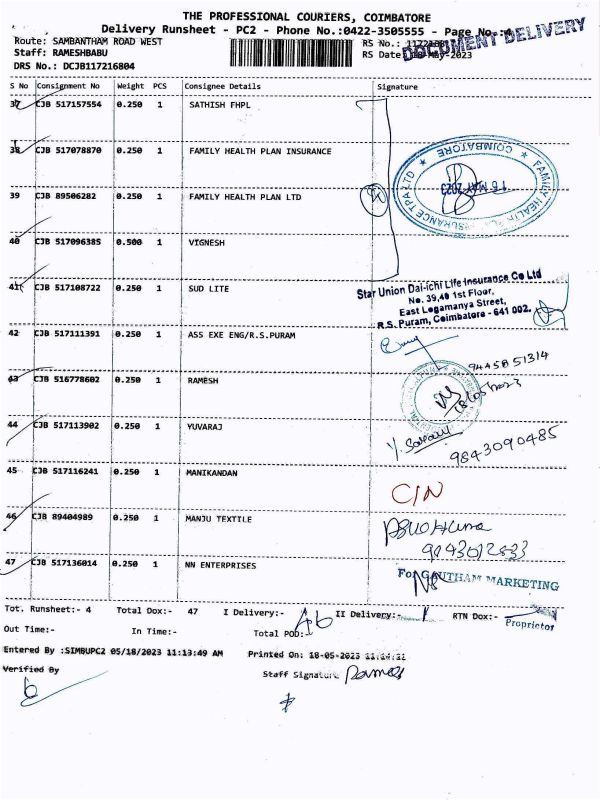 THE PROFESSIONAL COURIERS, COIMBATORE
Delivery Runsheet - PC2 - Phone No.:0422-3505555 - Page No.:4
DOCUMENT DELIVERY
Route: SAMBANTHAM ROAD WEST
RS No.:
Staff: RAMESHBABU
RS Date: 18-May-2023
DRS No.: DCJB117216804
S No Consignment No Weight PCS Consignee Details Signature
37 CJB 517157554 0.250 1 SATHISH FHPL
38 CJB 517078870 0.250 1 FAMILY HEALTH PLAN INSURANCE
FAMILY HEALTH INSURANCE TPA LTD
COIMBATORE
MAY 2023
39 CJB 89506282 0.250 1 FAMILY HEALTH PLAN LTD
40 CJB 517096385 0.500 1 VIGNESH
41 CJB 517108722 0.250 1 SUD LITE
Star Union Dai-ichi Life Insurance Co Ltd
No. 39,40 1st Floor,
East Logamanya Street,
R.S. Puram, Coimbatore - 641 002.
42 CJB 517111391 0.250 1 ASS EXE ENG/R.S.PURAM
94458 51314
43 CJB 516778602 0.250 1 RAMESH
44 CJB 517113902 0.250 1 YUVARAJ
9843090485
45 CJB 517116241 0.250 1 MANIKANDAN
C/N
46 CJB 89404989 0.250 1 MANJU TEXTILE
47 CJB 517136014 0.250 1 NN ENTERPRISES
For GAUTHAM MARKETING
Proprietor
Tot. Runsheet:- 4 Total Dox:- 47 I Delivery:- 46 II Delivery:- 1 RTN Dox:-
Out Time:- In Time:- Total POD:-
Entered By :SIMBUPC2 05/18/2023 11:13:49 AM Printed On: 18-05-2023
Verified By
Staff Signature